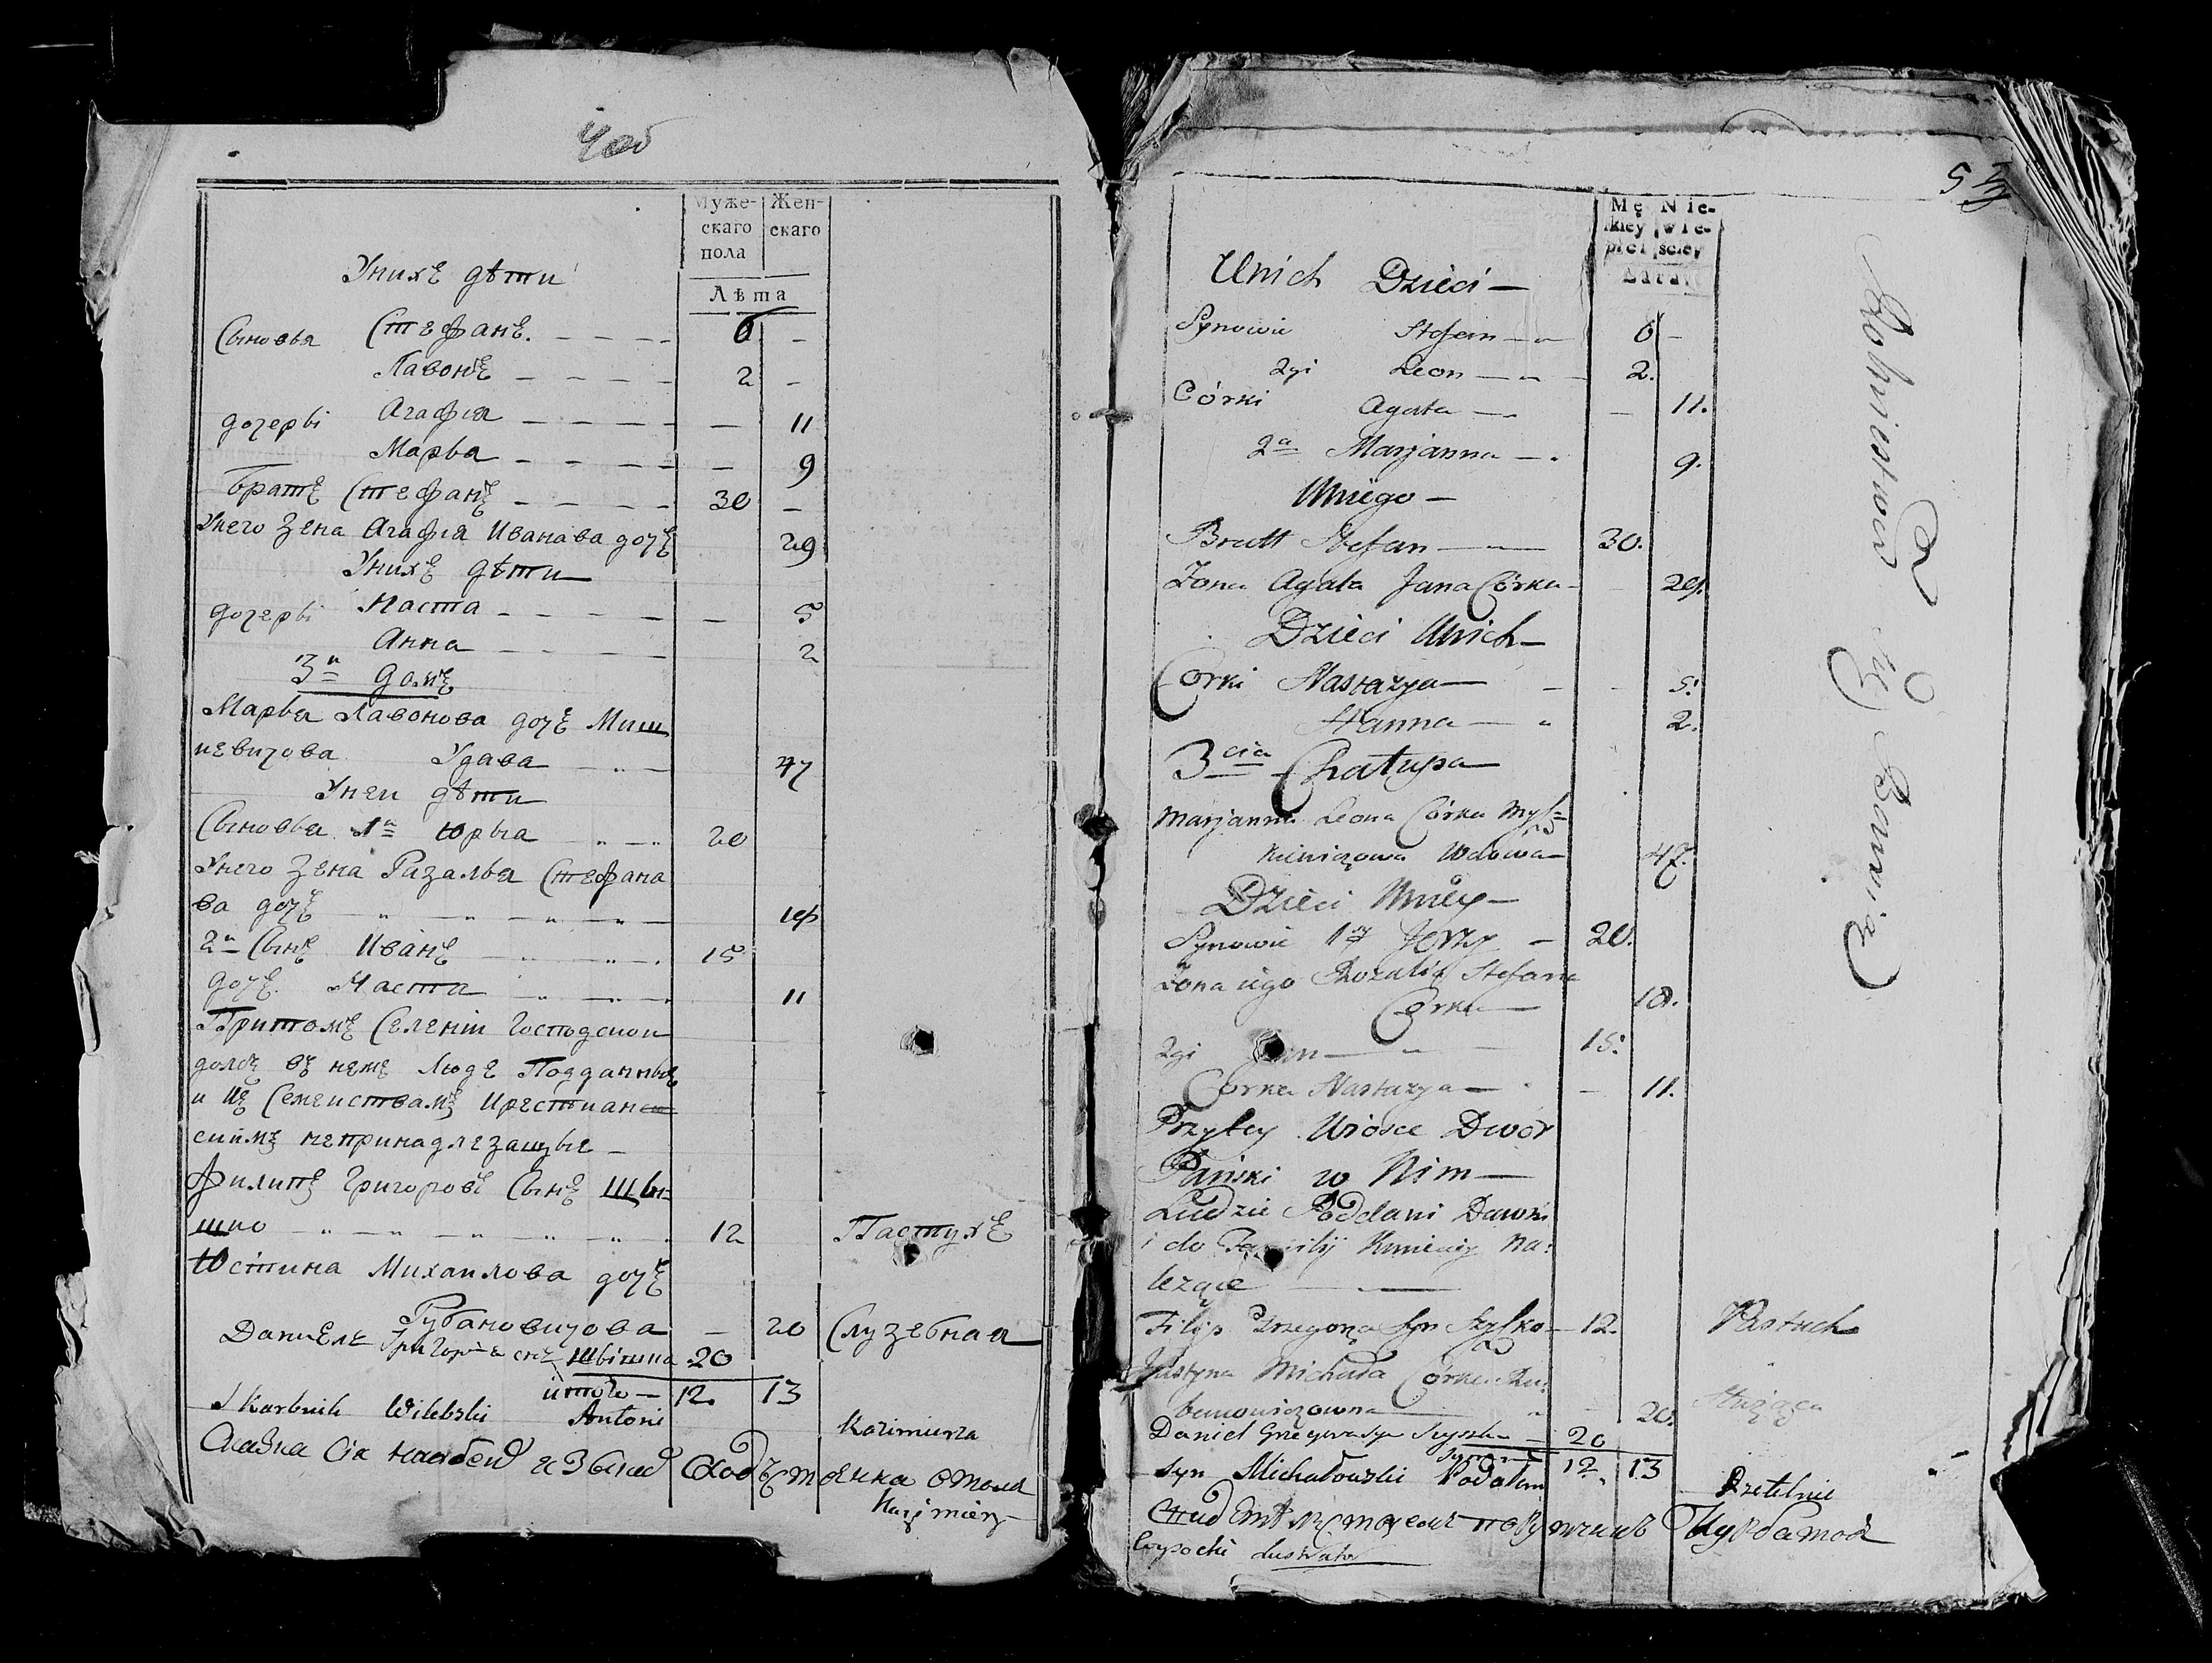 4об
Муже-
скаго
пола
Жен-
скаго
Лѣта
Унихъ дѣти
Сыновья Стефанъ. 6 -
Лавонъ 2 -
дочери Агафія - 11
Марья - 9
Братъ Стефанъ 30 -
Унего жена Агафія Иванава дочъ 29
Унихъ дѣти
дочери Наста - 5
Анна 2
3й домъ
Марья Лавонова дочъ Миш
кевичова Удава 47
Унеи дѣти
Сыновья 1й Юрья 20
Унего жена Разалья Стефана
ва дочъ 18
2й Сынъ Иванъ 15
дочъ Наста 11
Притомъ Селеніи Господскои
домъ въ немъ Люде Подданные
и Къ Семеиствамъ Крестианс
скимъ непринадлежащые
Филипъ Григоровъ Сынъ Шы
шко 12 Пастухъ
Юстина Михаилова дочъ
Рубановичова - 20 Служебная
Даниель Григорья снъ Швішка 20
итого 12. 13
Skarbnik Witebski Antoni Kazimierza
Kazimierz
5
Mę
skiey
płci
Nie-
wie-
sciey
Lata
Unich Dzieci
Synowie Stefan 6 -
2gi Leon 2.
Córki Agata - 11.
2a Marjanna 9.
Uniego
Bratt Stefan 30.
Żona Agata Jana Córka 29.
Dzieci Unich
Corki Nastazya 5.
Hanna 2.
3cia Chałupa
Marjanna Leona Córka Mysz=
kiewiczowa Wdowa 47.
Dzieci Uniey
Synowie 1y Jerzy 20.
Żona iego Rozalia Stefana
Corka 18.
2gi Jan 15.
Corka Nastazya - 11.
Przytey Wiosce Dwór
Pański w Nim
Ludzie Poddani Dworni
i do Familij Kmieciey na:
leżące
Filip Grzegorza Syn Szyszko 12. Pastuch
Justyna Michała Córka Ru:
banowiczowna 20. Służąca
Daniel Grzegorza Syn Szyszka 20
Summa 12. 13
Syn Michałowski Podałem Rzetelnie
Wysocki Lustrator